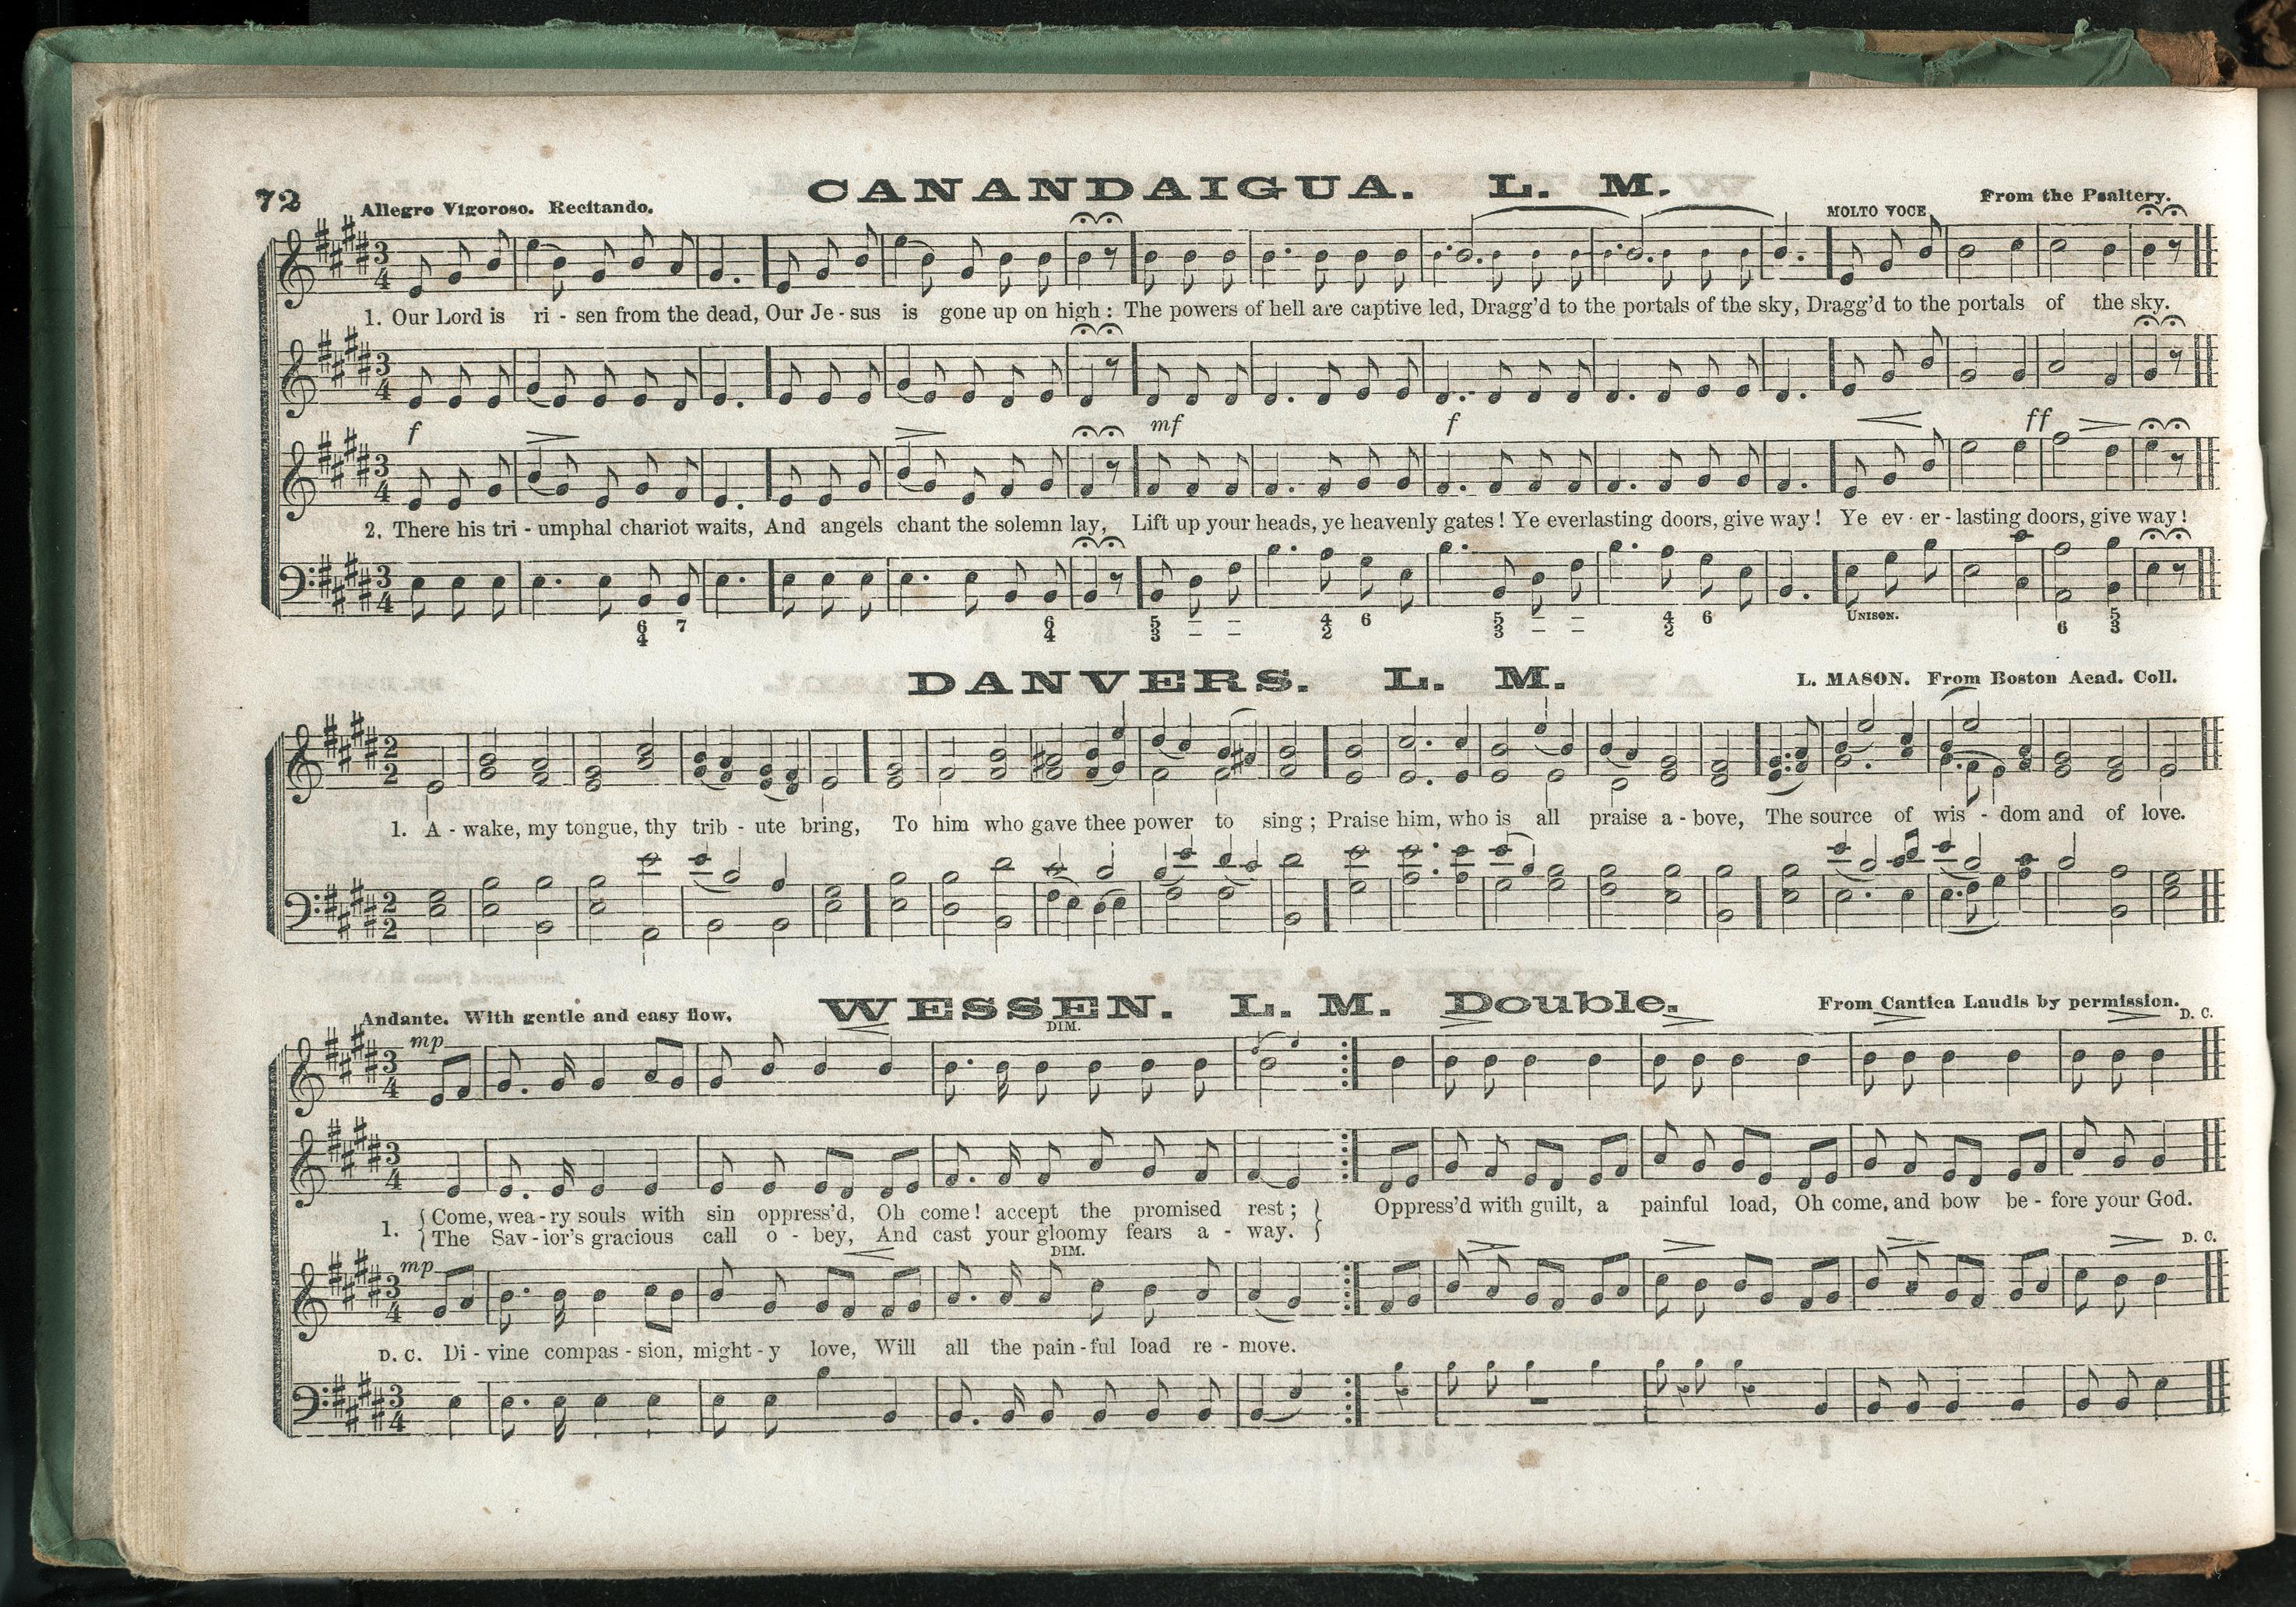 72
CANANDAIGUA. L. M.
Allegro Vigoroso. Recitando.
From the Psaltery.
MOLTO VOCE
1. Our Lord is ri - sen from the dead, Our Je - sus is gone up on high : The powers of hell are captive led, Dragg'd to the portals of the sky, Dragg'd to the portals of the sky.
f mf f ff
2. There his tri - umphal chariot waits, And angels chant the solemn lay, Lift up your heads, ye heavenly gates ! Ye everlasting doors, give way ! Ye ev - er - lasting doors, give way !
UNISON.
6 7 6 5 – – 4 6 5 – – 4 6 5
4 4 3 – – 2 3 – – 2 6 3
DANVERS. L. M.
L. MASON. From Boston Acad. Coll.
1. A - wake, my tongue, thy trib - ute bring, To him who gave thee power to sing ; Praise him, who is all praise a - bove, The source of wis - dom and of love.
WESSEN. L. M. Double.
Andante. With gentle and easy flow.
From Cantica Laudis by permission.
mp DIM. D. C.
1. { Come, wea - ry souls with sin oppress'd, Oh come ! accept the promised rest ; } Oppress'd with guilt, a painful load, Oh come, and bow be - fore your God.
{ The Sav - ior's gracious call o - bey, And cast your gloomy fears a - way. }
mp DIM. D. C.
D. C. Di - vine compas - sion, might - y love, Will all the pain - ful load re - move.